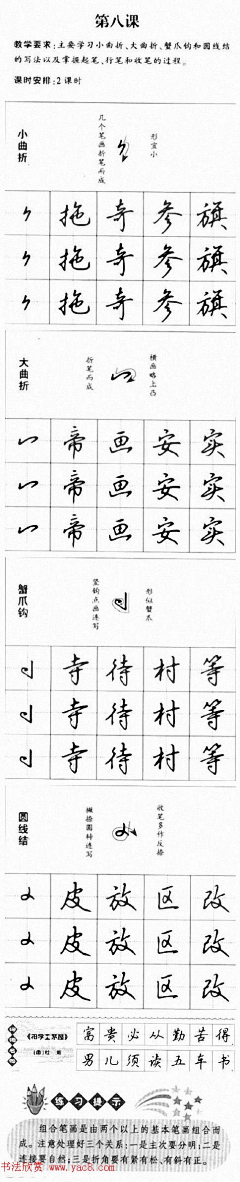 第八课
教学要求:主要学习小曲折、大曲折、蟹爪钩和圆线结
的写法以及掌握起笔、行笔和收笔的过程。
课时安排:2课时
小曲折
几个笔画折笔而成
形宜小
拖 奇 参 旗
拖 奇 参 旗
拖 奇 参 旗
大曲折
折笔而成
横画略上凸
帝 画 安 实
帝 画 安 实
帝 画 安 实
蟹爪钩
竖钩点画连写
形似蟹爪
寺 待 村 等
寺 待 村 等
寺 待 村 等
圆线结
撇捺圆转连写
收笔多作反捺
皮 放 区 改
皮 放 区 改
皮 放 区 改
富 贵 必 从 勤 苦 得
男 儿 须 读 五 车 书
练习提示
组合笔画是由两个以上的基本笔画组合而
成。注意处理好三个关系:一是主次要分明;二是
连接要自然;三是折角要有紧有松、有斜有正。
书法欣赏 www.yac8.com